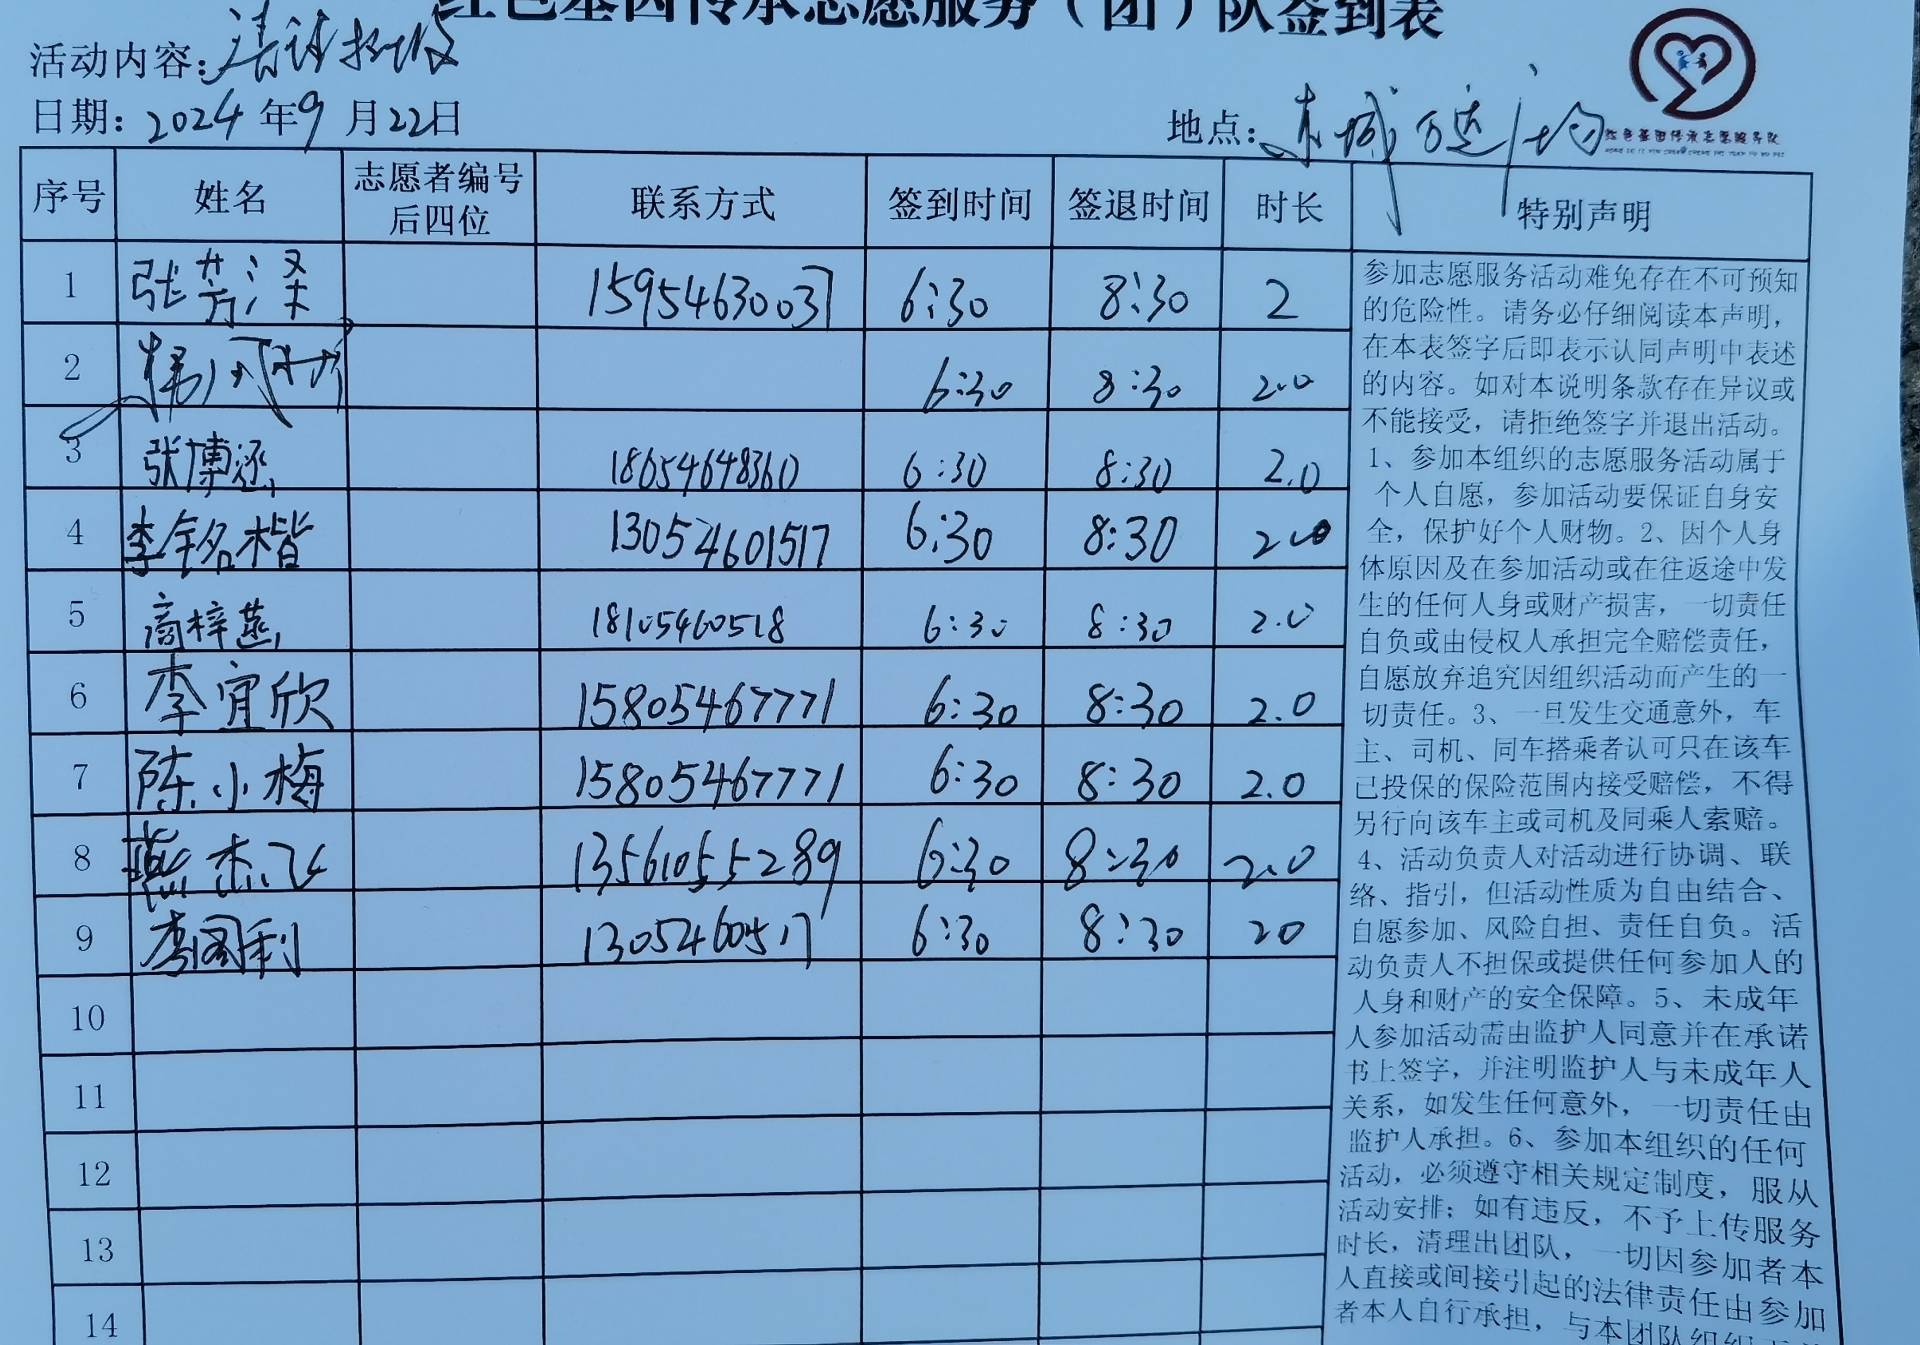 红色基因传承志愿服务（团）队签到表
活动内容：清诗接城
日期：2024年9月22日
地点：东城万达广场
红色基因传承志愿服务队
序号 姓名 志愿者编号后四位 联系方式 签到时间 签退时间 时长 特别声明
1 张芳泽 15954630037 6:30 8:30 2
2 6:30 8:30 2.0
3 张博涵 18654648360 6:30 8:30 2.0
4 李铭楷 13054601517 6:30 8:30 2.0
5 高梓燕 18105460518 6:30 8:30 2.0
6 李宜欣 15805467771 6:30 8:30 2.0
7 陈小梅 15805467771 6:30 8:30 2.0
8 燕杰飞 13561055289 6:30 8:30 2.0
9 李图利 1305460517 6:30 8:30 20
10
11
12
13
14
参加志愿服务活动难免存在不可预知
的危险性。请务必仔细阅读本声明，
在本表签字后即表示认同声明中表述
的内容。如对本说明条款存在异议或
不能接受，请拒绝签字并退出活动。
1、参加本组织的志愿服务活动属于
个人自愿，参加活动要保证自身安
全，保护好个人财物。2、因个人身
体原因及在参加活动或在往返途中发
生的任何人身或财产损害，一切责任
自负或由侵权人承担完全赔偿责任，
自愿放弃追究因组织活动而产生的一
切责任。3、一旦发生交通意外，车
主、司机、同车搭乘者认可只在该车
已投保的保险范围内接受赔偿，不得
另行向该车主或司机及同乘人索赔。
4、活动负责人对活动进行协调、联
络、指引，但活动性质为自由结合、
自愿参加、风险自担、责任自负。活
动负责人不担保或提供任何参加人的
人身和财产的安全保障。5、未成年
人参加活动需由监护人同意并在承诺
书上签字，并注明监护人与未成年人
关系，如发生任何意外，一切责任由
监护人承担。6、参加本组织的任何
活动，必须遵守相关规定制度，服从
活动安排；如有违反，不予上传服务
时长，清理出团队，一切因参加者本
人直接或间接引起的法律责任由参加
者本人自行承担，与本团队组织